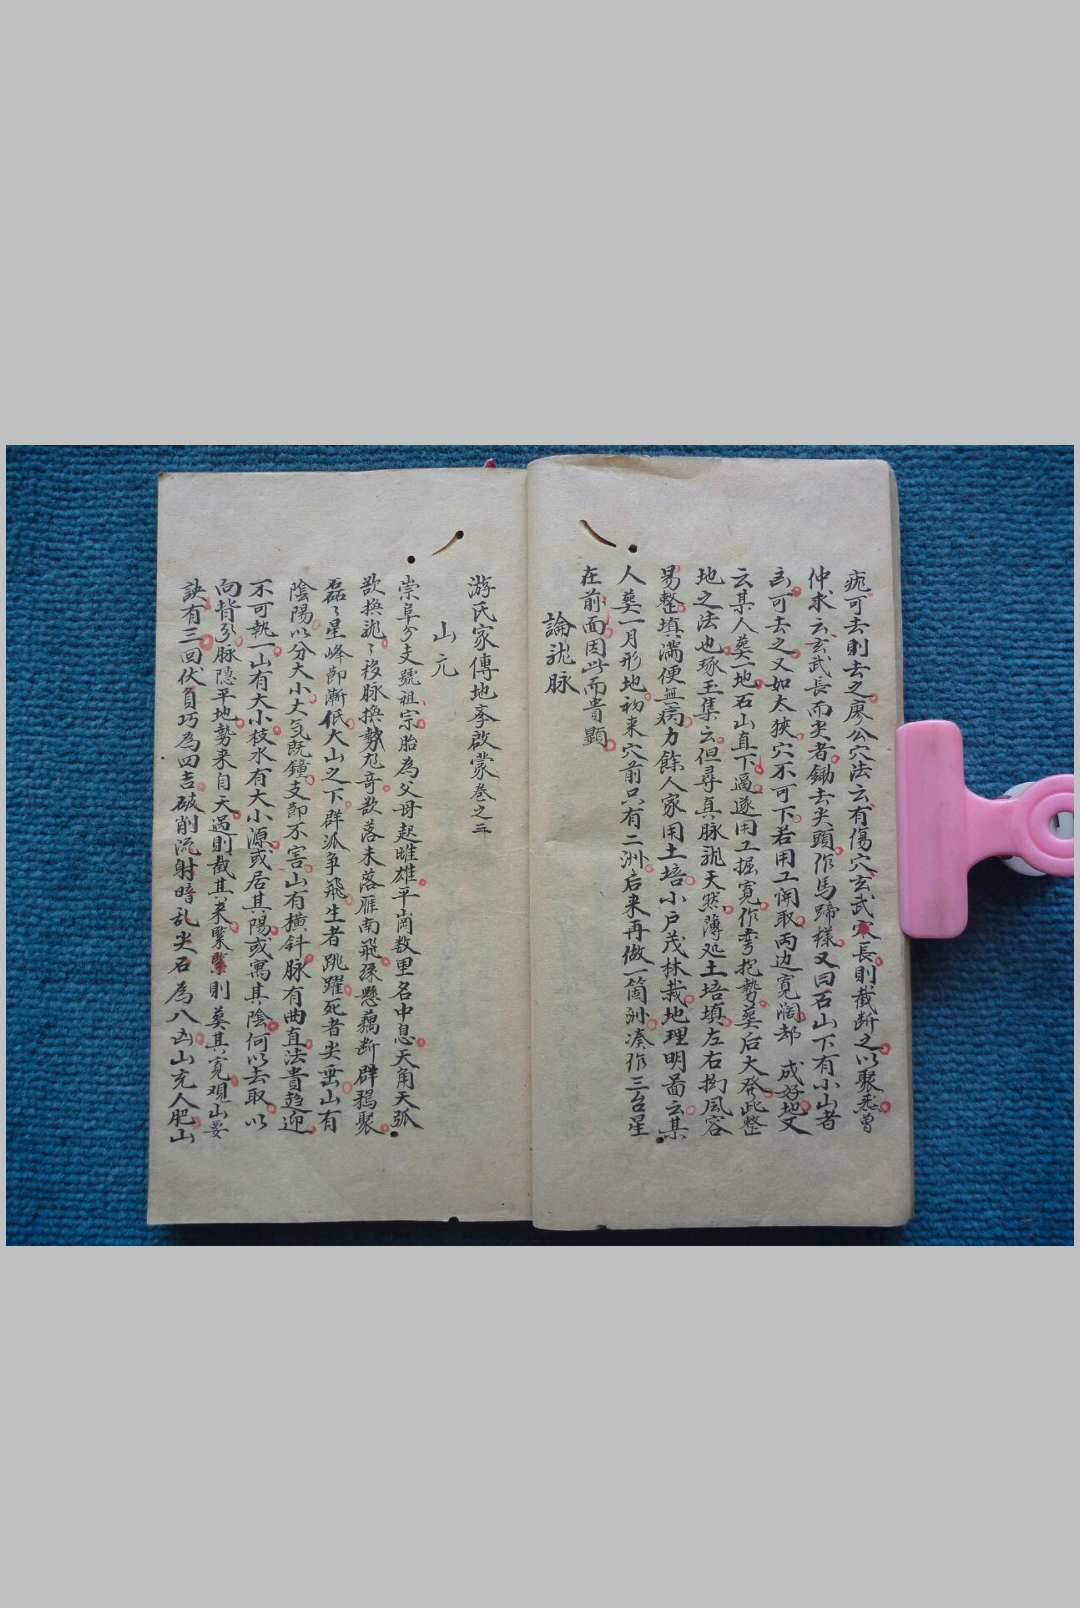 疤可去則去之廖公穴法云有傷穴玄武寒長則截断之以聚悉曾
仲求云玄武長而尖者鋤去尖頭作馬蹄樣又曰石山下有小山者
可去之又如太狹穴不可下若用工開取両边寛闊却成好地又
云某人塟一地石山直下逼遂用工掘寛作弯抱勢塟后大發此整
地之法也琢玉集云但尋真脉龍天然薄処土培填左右拗風容
易整填満便無病力餘人家用土培小戶茂林栽地理明啚云某
人塟一月形地初来穴前只有二洲后来再做一箇洲湊作三台星
在前面因此而貴顕
論龍脉
游氏家傳地李啟蒙巻之三
山元
崇阜分支號祖宗胎為父母起雌雄平崗数里名中息天角天弧
欲換龍〻移脉換勢尤奇欲落未落雁南飛珠懸藕断群鴉聚
磊〻星峰即漸低大山之下群派争飛生者跳躍死者尖垂山有
陰陽以分大小大気既鐘支節不害山有横斜脉有曲直法貴趋迎
不可執一山有大小枝水有大小源或居其陽或寓其陰何以去取以
向背分脉隱平地勢来自天遇則截其来緊緊則奠其寛观山要
訣有三回伏負巧為四吉破削流射暗乱尖石為八凶山充人肥山